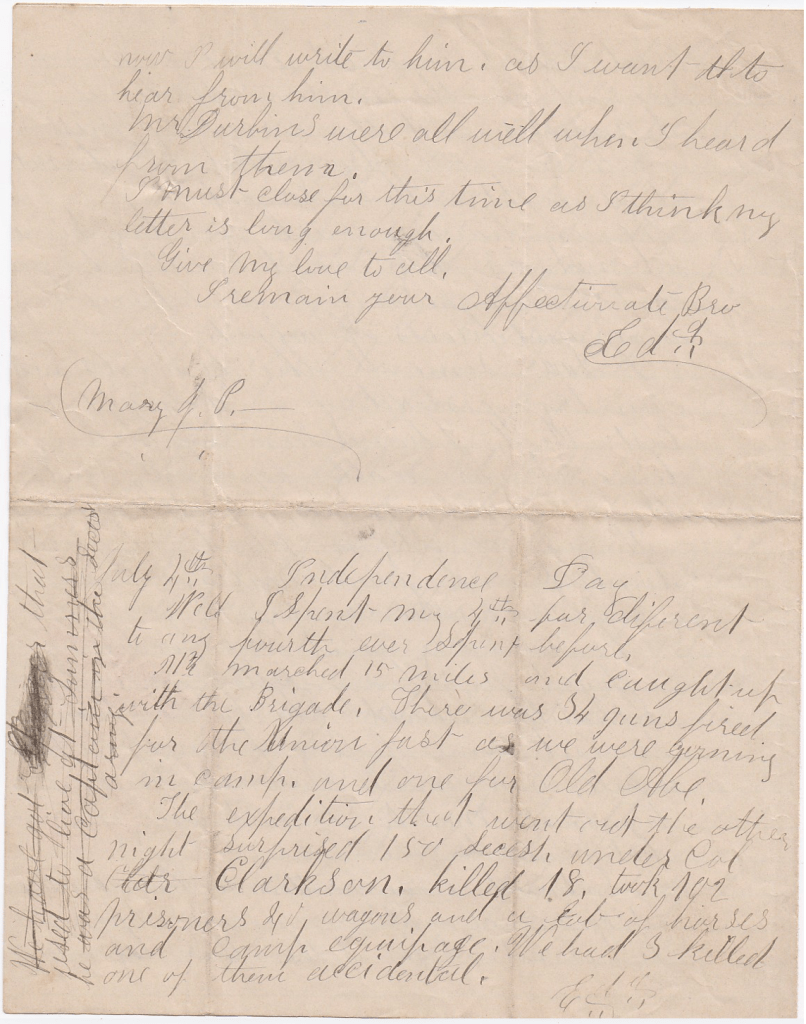 now I will write to him. as I want to
hear from him.
Mr Durbins were all well when I heard
from them.
I must close for this time as I think my
letter is long enough.
Give my love to all.
I remain your Affectionate Bro
Ed
Mary J. P.
July 4th Independence Day
Well I Spent my 4th far diferent
to any fourth ever Spent before.
We marched 15 miles and caught up
with the Brigade. There was 34 guns fired
for the Union just as we were coming
in camp. and one for Old Abe
The expedition that went out the other
night surprised 150 secesh. under Col
Clarkson. killed 18. took 102
prisoners 40 wagons and a lot of horses
and camp equipage. We had 3 killed
one of them accidental.
We have got that
used to live at
he was a Captain in the Secesh
army